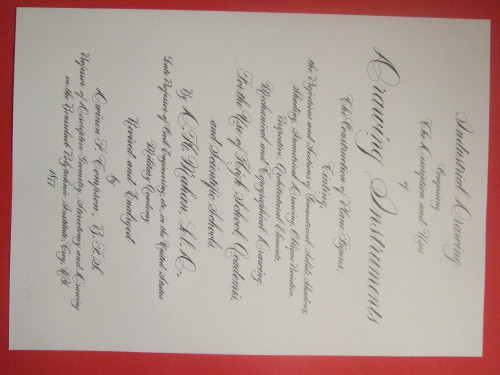 Industrial Drawing,
Comprising
The Description and Uses
of
Drawing Instruments
The Construction of Plane Figures,
Tinting,
the Projections and Sections of Geometrical Solids, Shadows,
Shading, Isometrical Drawing, Oblique Projection,
Perspective, Architectural Elements,
Mechanical and Topographical Drawing.
For the Use of High School, Academies,
and Scientific Schools.
By D. H. Mahan, LL.D.,
Late Professor of Civil Engineering, etc., in the United States
Military Academy
Revised and Enlarged
by
Dwinen F. Thompson, B.F.S.
Professor of Descriptive Geometry, Stereotomy and Drawing
in the Rensselaer Polytechnic Institute, Troy, N.Y.
1877